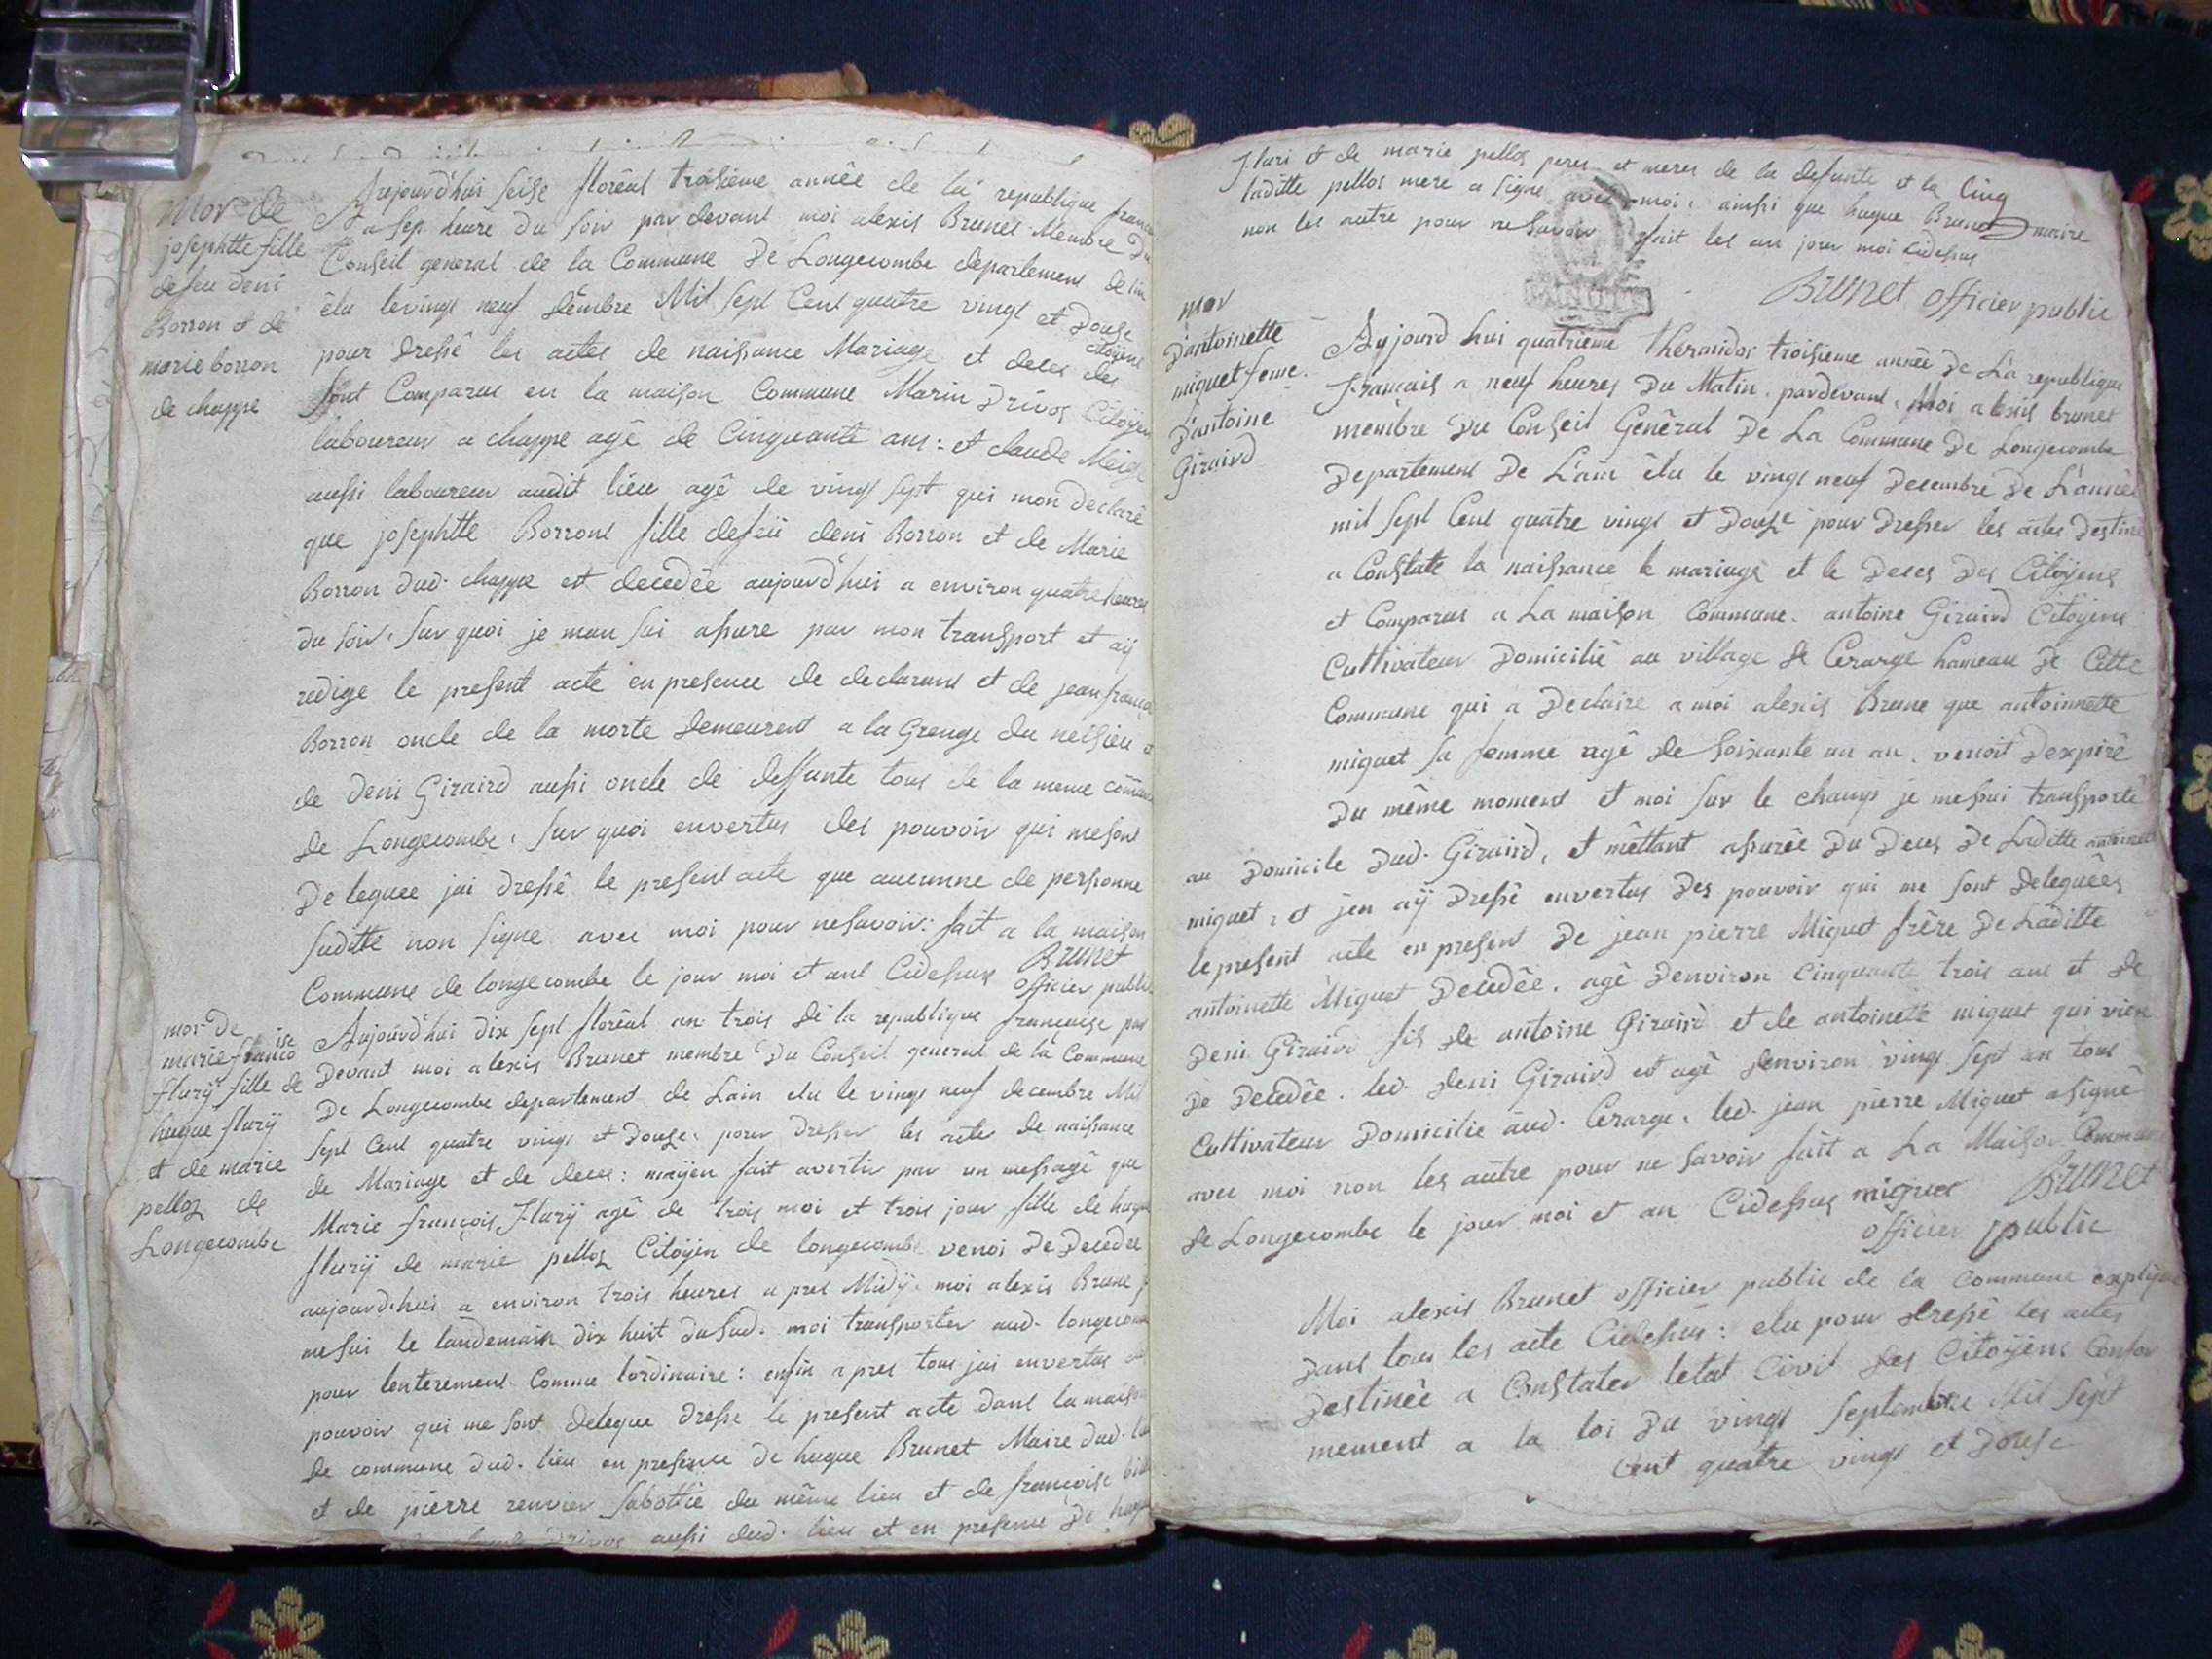 Mor de
josephtte fille
defeu deni
Borron et de
marie borron
de chappe
Aujourd'hui seise floréal troisieme année de la republique franca
a sep heure du soir par devant moi alexis Brunet Membre Du
Conseil general de la Commune De Longecombe departement de lin
élu levingt neuf démbre Mil sept Cent quatre vingt et Douse
pour dressé les actes de naissance Mariage et deces des citoyens
sont Comparus en la maison Commune Marin Drivos Citoyen
laboureur a chappe agé de Cinquante ans : et claude
aussi laboureur audit lieu agé de vingt sept qui mon declaré
que josephtte Borront fille defeü deni Borron et de Marie
Borron dud. chappe est decedée aujourd'hui a environ quatre heures
du soir. Sur quoi je man sui assure par mon transport et aÿ
redige le present acte en presence de declarans et de jean franço
Borron oncle de la morte demeurent a la Grenge du
de Deni Giraird aussi oncle de deffunte tous de la meme comune
de Longecombe, sur quoi envertus des pouvoir qui mesont
Deleguee jai dressé le present acte que aucunne de personne
suditte non signe avec moi pour nesavoir : fait a la maison
Commune de longecombe le jour moi et ant Cidessux Brunet
officier public
mor de
marie franco ise
flurÿ fille de
hugue flurÿ
et de marie
pelloz de
Longecombe
Aujourd'hui dix sept floréal an trois de la republique francaise par
Devant moi alexis Brunet membre Du Conseil general de la Commune
De Longecombe departement de Lain elu le vingt neuf decembre Mil
sept Cent quatre vingt et Douze. pour dresser les acte de naissance
de Mariage et de deces : maÿen fait avertir par un messagé que
Marie françois Flurÿ agé de trois moi et trois jour fille de hugue
flurÿ de marie pelloz Citoÿen de longecombe venoi De Decedee
aujourd'hui a environ trois heures a pres Midÿ. moi alexis Brune
me sui le landemain dix huit dusud. moi transporter aud. longecom
pour lenterement Comme lordinaire : enfin a pres tous jai envertus
pouvoir qui me sont delegue dresse le present acte dans la maison
de commune dud. lieu en presence de hugue Brunet Maire dud. lieu
et de pierre renvier sabottié du même lieu et de françoise
Drivos aussi dud. lieu et en presence De hugue
Fluri et de marie pellos peres et meres de la defunte et la Cinq
laditte pellos mere a signe avec moi. ainssi que hugue Brunet maire
non les autre pour ne savoir fait les an jour moi cidessus
Brunet officier public
mor
d'antoinette
miguet feme.
d'antoine
Giraird
Aujourd hui quatrieme thermidor troisieme année De La republique
Français a neuf heures Du Matin. pardevant, Moi alexis brunet
membre Du Conseil Général De La Commune De Longecombe
Departement De L'ain élu le vingt neuf Decembre De L'année
mil sept Cent quatre vingt et Douse pour Dresser les actes Destine
a Constate la naissance le mariage et le Deces Des Citoÿens
et Comparus a La maison Commune. antoine Giraird Citoÿens
Cultivateur Domicilié au village de Cerarge hameau De Cette
Commune qui a Declaire a moi alexis Brune que antoinnette
miguet sa femme agé de soixante un an. venoit Dexpiré
Du même moment et moi sur le champ je messui transporté
au Domicile Dud. Giraird, et mêttant assurée Du Deces De Laditte antoinette
miguet, et jen aÿ Dressé envertus Des pouvoir qui me sont Deleguées
le present acte en present De jean pierre Miguet frère De Laditte
antoinette Miguet Decedée. agé Denviron Cinquante trois ans et de
Deni Giraird fils de antoine Giraird et de antoinette miguet qui vien
De Decedée. led. Deni Giraird et agé denviron vingt sept an tous
Cultivateur Domicilie aud. Cerarge. led. jean pierre Miguet a signé
avec moi non les autre pour ne savoir fait a La Maison Commune
de Longecombe le jour moi et an Cidessus miguet Brunet
officier public
Moi alexis Brunet officier public de la Commune expliqué
Dans tous les acte Cidessus : elu pour dressé les actes
Destinée a Constater letat Civil des Citoÿens Confor
mement a la loi Du vingt septembre Mil sept
Cent quatre vingt et Douse